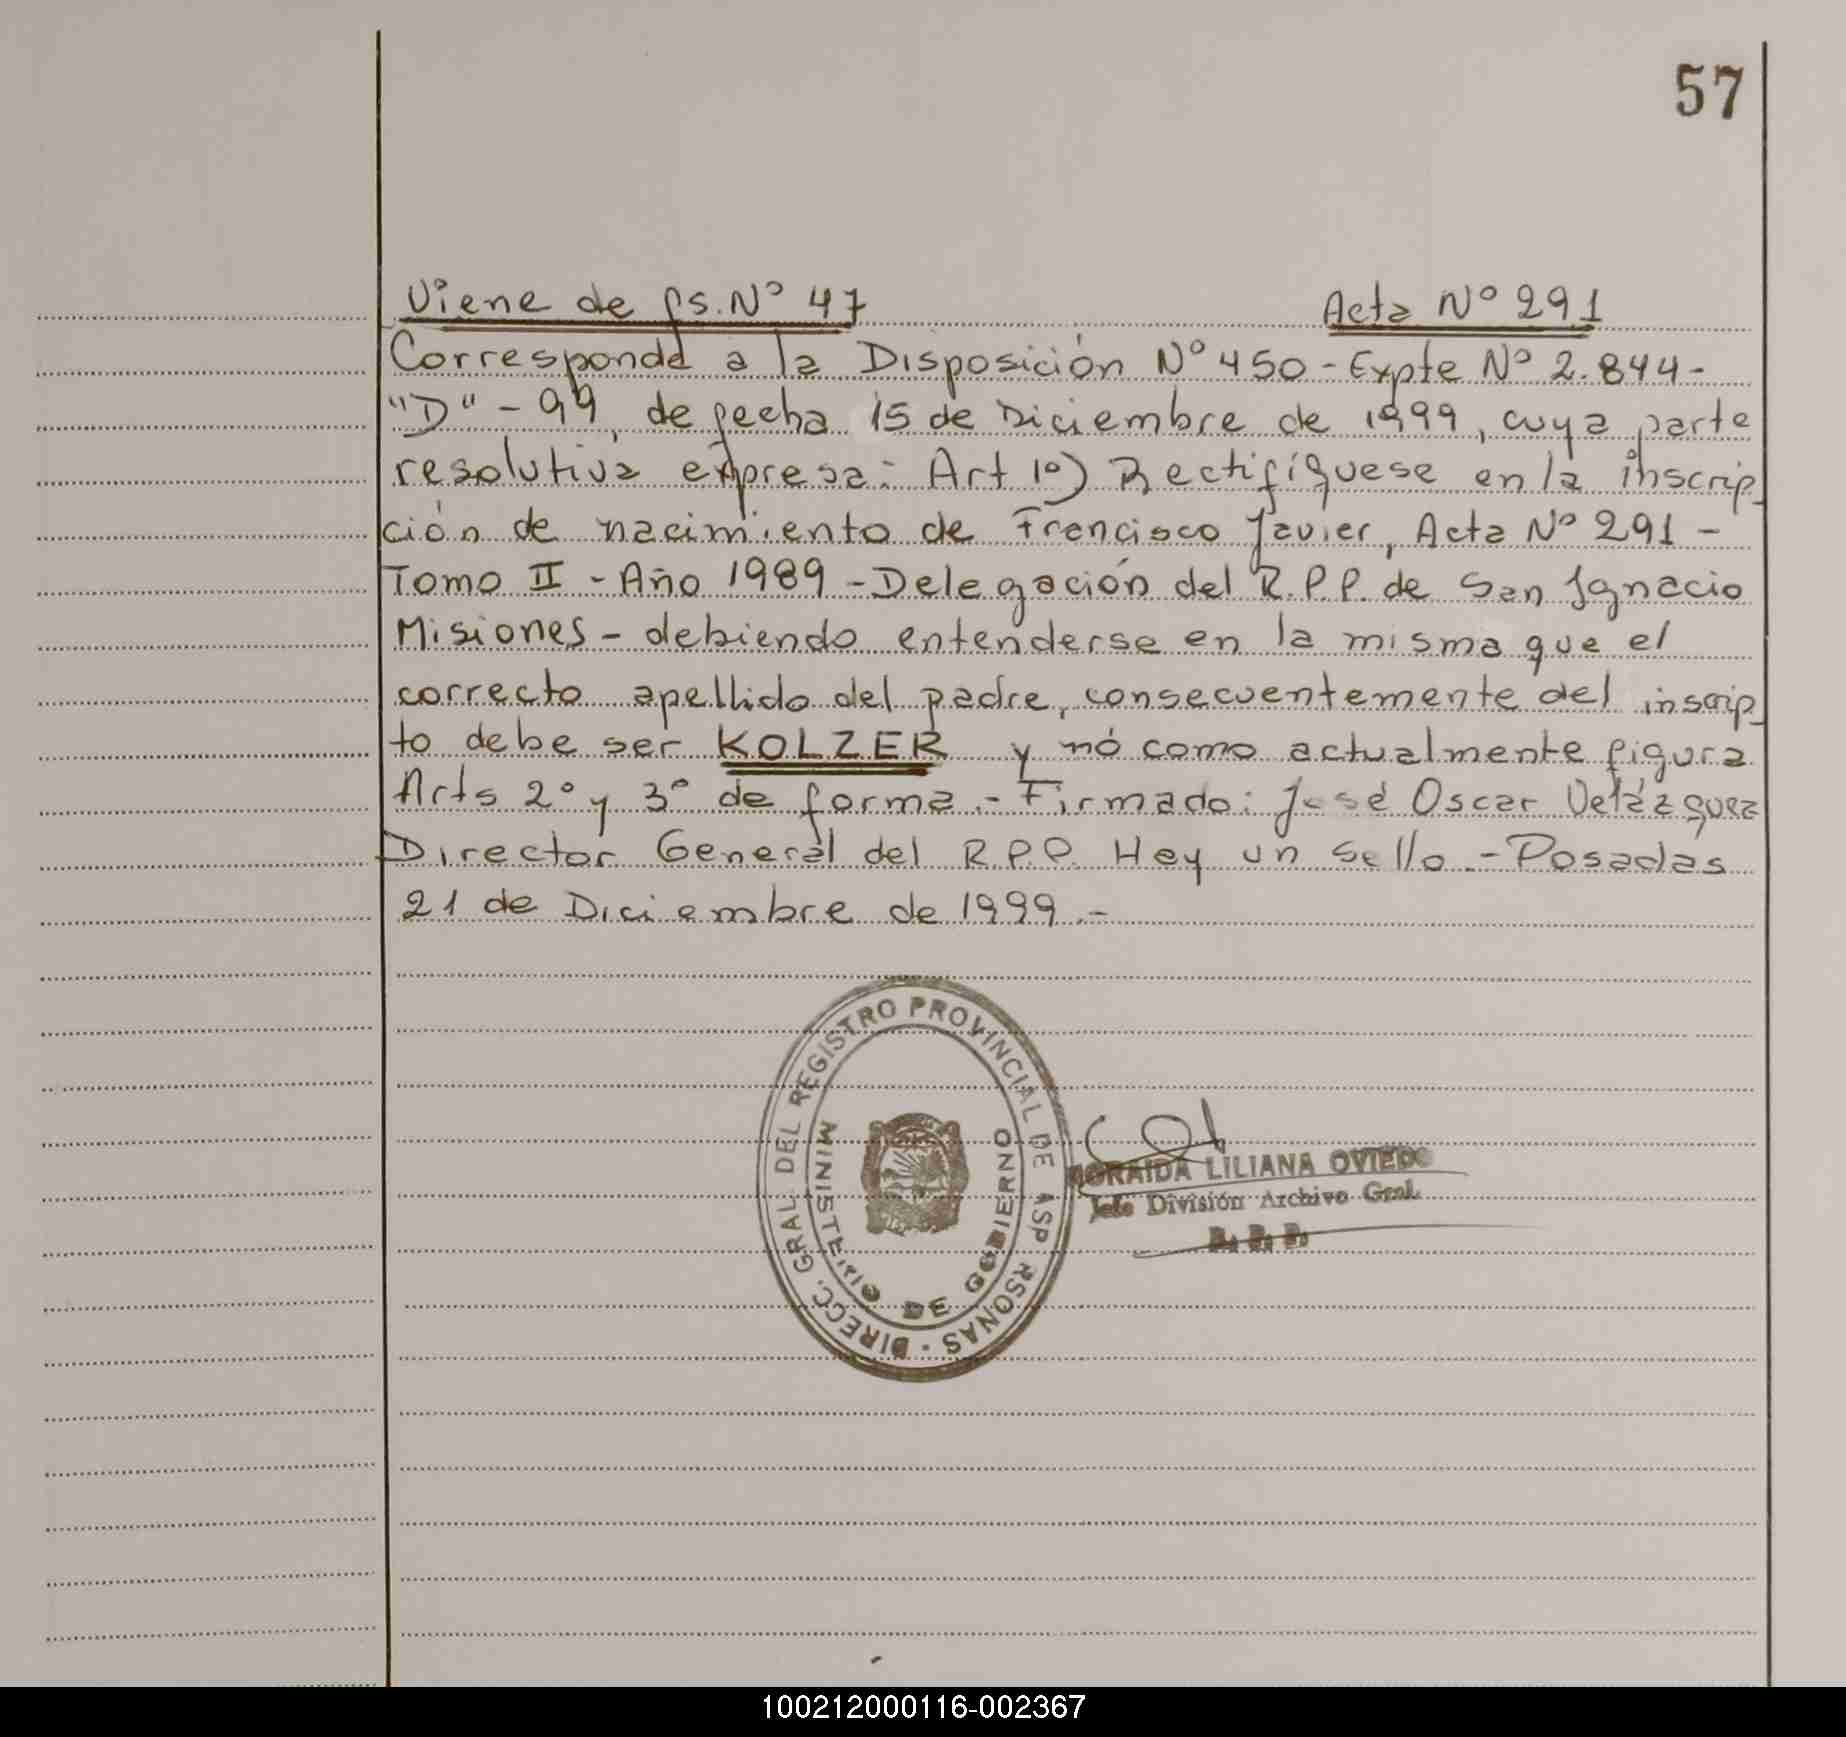 57
Viene de fs. Nº 47 Acta Nº 291
Corresponde a la Disposición Nº 450 - Expte Nº 2.844 -
"D" - 99, de fecha 15 de Diciembre de 1999, cuya parte
resolutiva expresa: Art 1º) Rectifíquese en la inscrip
ción de nacimiento de Francisco Javier, Acta Nº 291 -
Tomo II - Año 1989 - Delegación del R.P.P. de San Ignacio
Misiones - debiendo entenderse en la misma que el
correcto apellido del padre, consecuentemente del inscrip
to debe ser KOLZER y nó como actualmente figura
Arts 2º y 3º de forma. - Firmado: José Oscar Velázquez
Director General del R.P.P. Hay un sello. - Posadas
21 de Diciembre de 1999. -
DIRECC. GRAL. DEL REGISTRO PROVINCIAL DE ASP RSONAS -
MINISTERIO DE GOBIERNO
LILIANA OVIEDO
Jefe División Archivo Gral.
R. P. P.
100212000116-002367